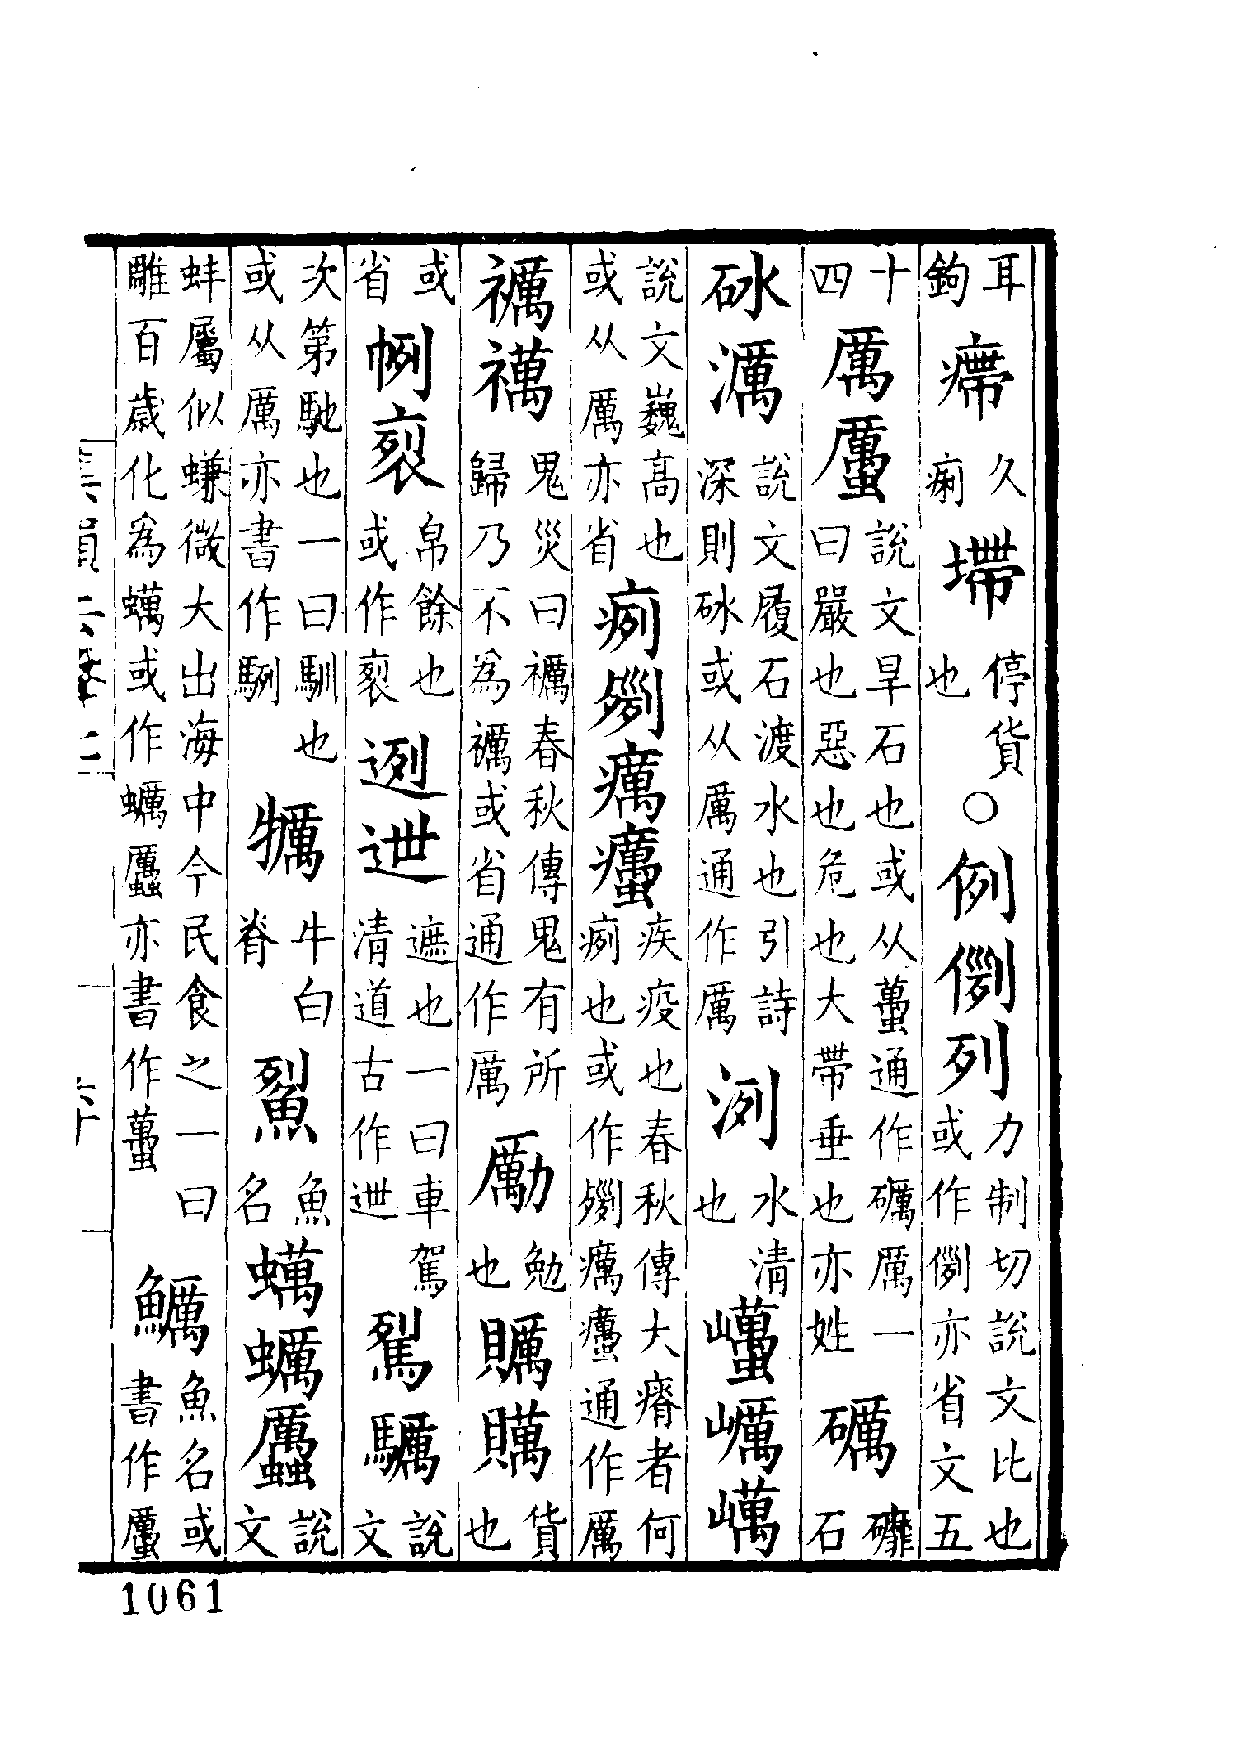 耳鉤㿃久痢墆停貨也○例列力制切說文比也或作亦省文五
十四厲說文旱石也或从蠆通作礪厲一曰嚴也惡也危也大帶垂也亦姓礪䃺石
砅濿說文履石渡水也引詩深則砅或从厲通作厲洌水清也巁
說文巍高也或从厲亦省㾐癘疾疫也春秋傳大瘠者何㾐也或作癘通作厲
禲鬼災曰禲春秋傳鬼有所歸乃不為禲或省通作厲勵勉也貨也
或省㡂裂帛餘也或作裂迾迣遮也一曰車駕清道古作迣鴷說文
次第馳也一曰馴也或从厲亦書作䮋犡牛白脊鮤魚名蠣說文
蚌屬似螊微大出海中今民食之一曰雕百歲化為或作蠣亦書作魚名或書作
集韻卷七
六十
1061